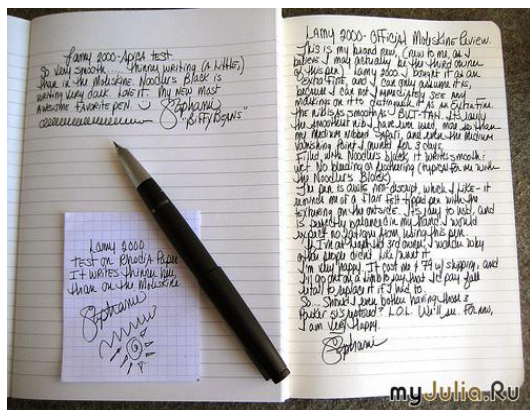 Lamy 2000 - Apica test
So very smooth.... thinner writing (a little)
than in the Moleskine. Noodler's Black is
writing very dark. Love it. My new most
awesome favorite pen.
Stephanie
"Biffybeans"
Lamy 2000
test on Rhodia Paper
It writes thinner here
than on the Moleskine
Stephanie
Lamy 2000 - Official Moleskine Review.
This is my brand new, (new to me, as I
believe I may actually be the third owner
of this pen) Lamy 2000. I bought it as an
Extra fine, and I can only assume it is,
because I can not immediately see any
markings on it to distinguish it as an Extra fine.
The nib is as smooth as
the smoothest nib I have ever used, more so than
my medium nibbed Safari, and even the medium
vanishing Point I owned for 3 days.
Filled with Noodlers black, it writes smooth:
wet. No bleeding or feathering (typical for me with
the Noodler's Black)
The pen is quite non-descript, which I like - it
reminds me of a Flair felt tipped pen with the
texturing on the outside. It's easy to hold, and
is perfectly balanced in my hand. I would
expect no fatigue from using this pen.
If I'm at least the 3rd owner, I wonder why
other people didn't want it.
I'm very happy. It cost me $79 w/shipping, and
I'll go out on a limb to say that I'd pay full
retail to replace it if I had to.
So... Should I even bother having those 2
Parker 51's restored? L.O.L. We'll see. For now,
I am very Happy.
Stephanie
myJulia.Ru